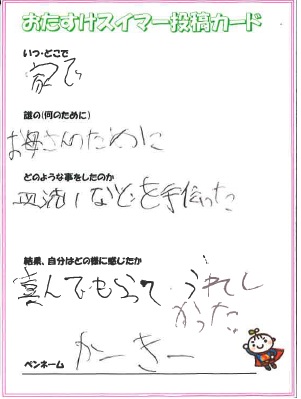 おたすけスイマー投稿カード
いつ・どこで
家で
誰の(何のために)
お母さんのために
どのような事をしたのか
皿洗いなどを手伝った
結果、自分はどの様に感じたか
喜んでもらって、うれし
かった。
ペンネーム かーきー